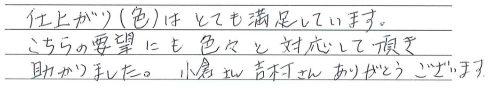 仕上がり(色)はとても満足しています。
こちらの要望にも色々と対応して頂き
助かりました。小倉さん吉村さんありがとうございます